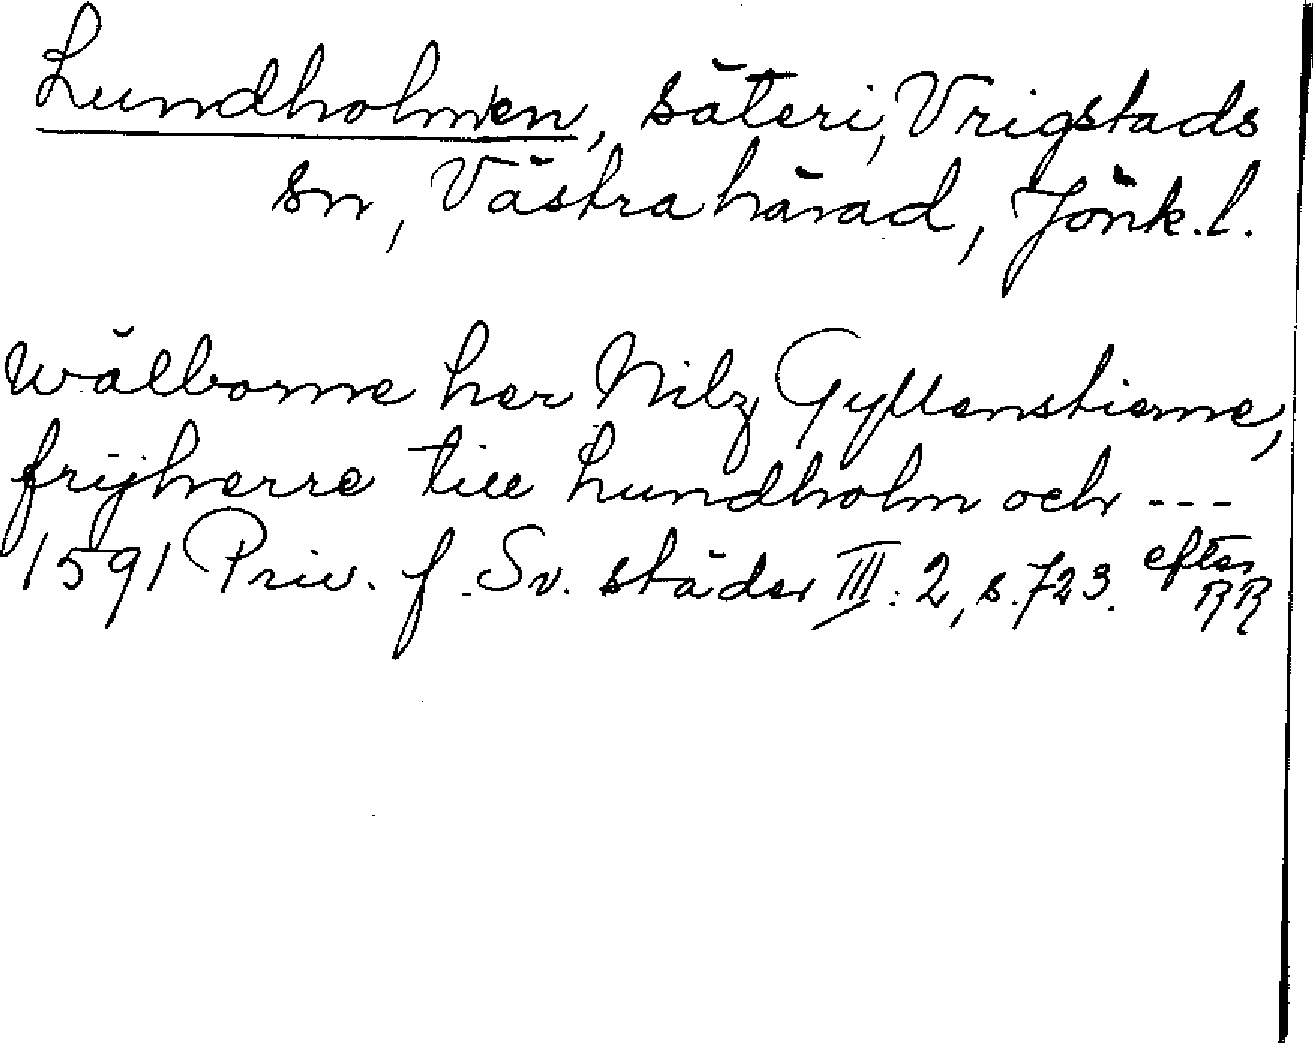 Lundholmen, säteri, Vrigstads
sn, Västra härad, Jönk. l.
wälborne her Nilz Gyllenstierne,
frijherre till Lundholm och ---
1591 Priv. f. Sv. städer III: 2, s. 723. efter
RR